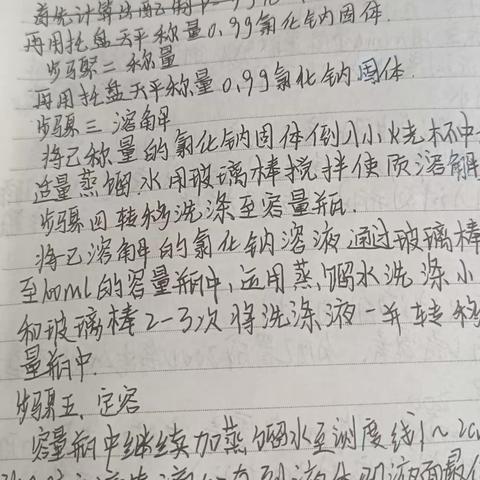 首先计算出配制
再用托盘天平称量0.9g氯化钠固体.
步骤二 称量
再用托盘天平称量0.9g氯化钠固体.
步骤三 溶解
将已称量的氯化钠固体倒入小烧杯中
适量蒸馏水用玻璃棒搅拌使质溶解
步骤四 转移洗涤至容量瓶.
将已溶解的氯化钠溶液通过玻璃棒
至100ml的容量瓶中,运用蒸馏水洗涤小
和玻璃棒2-3次将洗涤液一并转移
量瓶中.
步骤五. 定容
容量瓶中继续加蒸馏水至刻度线1~2c